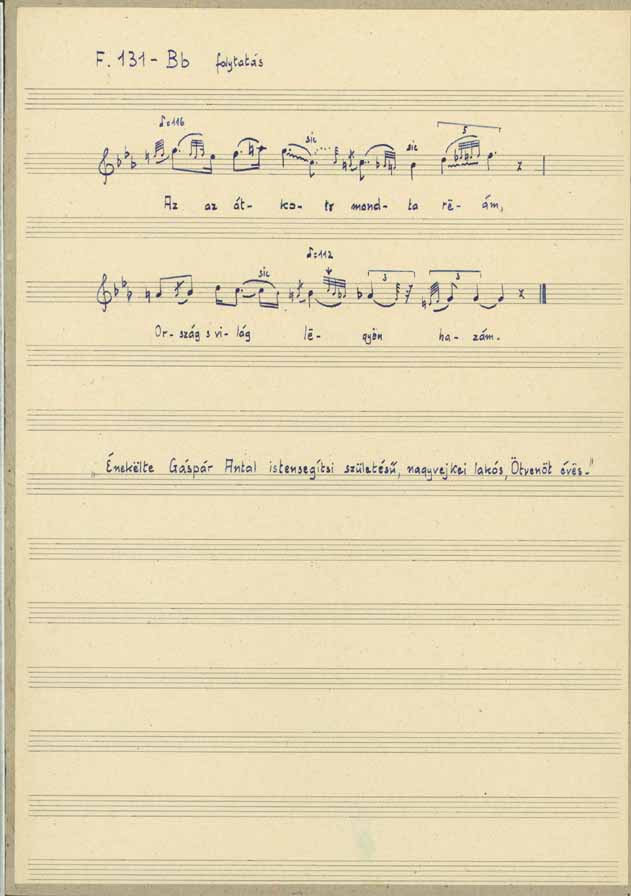 F. 131 - Bb folytatás
♪=116
sic sic 5
Az az át- ko- to mond- ta rë- ám,
♪=112
sic 3 3
Or- szág s vi- lág lë- gyën ha- zám.
„Énekëlte Gáspár Antal istensegítsi születésű, nagyvejkei lakós, Ötvenöt évës."